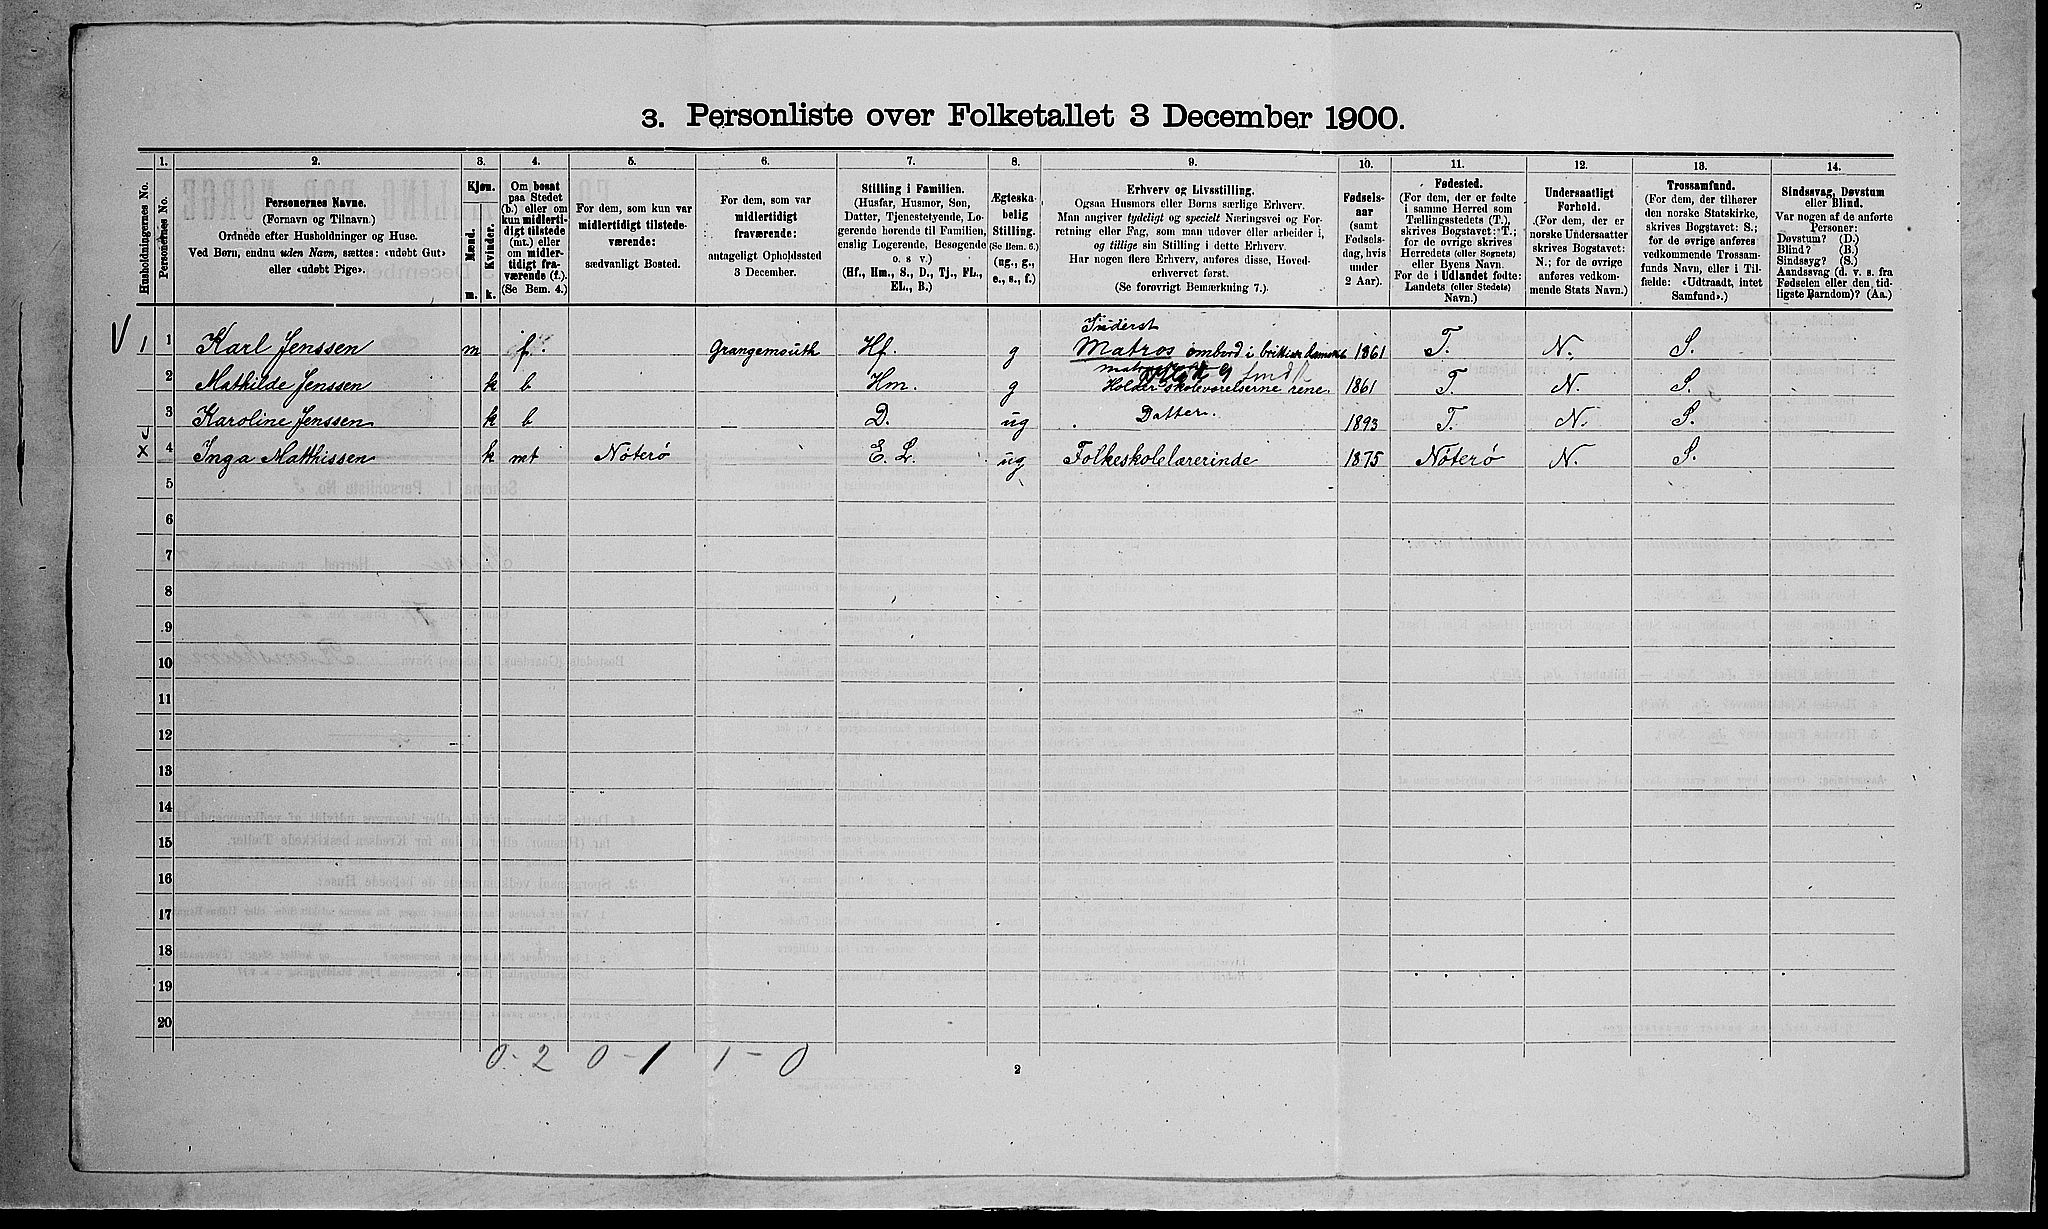 3. Personliste over Folketallet 3 December 1900.
Husholdningernes No.
1.
Personernes No.
2.
Personernes Navne.
(Fornavn og Tilnavn.)
Ordnede efter Husholdninger og Huse.
Ved Børn, endnu uden Navn, sættes: «udøbt Gut»
eller «udøbt Pige».
3.
Kjøn.
Mænd.
Kvinder.
m.
k.
4.
Om bosat
paa Stedet
(b.) eller om
kun midlerti-
digt tilstede
(mt.) eller
om midler-
tidigt fra-
værende (f.).
(Se Bem. 4.)
5.
For dem, som kun var
midlertidigt tilstede-
værende:
sædvanligt Bosted.
6.
For dem, som var
midlertidigt
fraværende:
antageligt Opholdssted
3 December.
7.
Stilling i Familien.
(Husfar, Husmor, Søn,
Datter, Tjenestetyende, Lo-
gerende hørende til Familien,
enslig Logerende, Besøgende
o. s v.)
(Hf., Hm., S., D., Tj., FL.,
EL., B.)
8.
Ægteska-
belig
Stilling.
(Se Bem. 6.)
(ug., g.,
e., s., f.)
9.
Erhverv og Livsstilling.
Ogsaa Husmors eller Børns særlige Erhverv.
Man angiver tydeligt og specielt Næringsvei og For-
retning eller Fag, som man udøver eller arbeider i,
og tillige sin Stilling i dette Erhverv.
Har nogen flere Erhverv, anføres disse, Hoved-
erhvervet først.
(Se forøvrigt Bemærkning 7.)
10.
Fødsels-
aar
(samt
Fødsels-
dag, hvis
under
2 Aar).
11.
Fødested.
(For dem, der er fødte
i samme Herred som
Tællingsstedets (T.),
skrives Bogstavet: T.;
for de øvrige skrives
Herredets (eller Sognets)
eller Byens Navn.
For de i Udlandet fødte:
Landets (eller Stedets)
Navn.)
12.
Undersaatligt
Forhold.
(For dem, der er
norske Undersaatter
skrives Bogstavet:
N.; for de øvrige
anføres vedkom-
mende Stats Navn.)
13.
Trossamfund.
(For dem, der tilhører
den norske Statskirke,
skrives Bogstavet: S.;
for de øvrige anføres
vedkommende Trossam-
funds Navn, eller i Til-
fælde: «Udtraadt, intet
Samfund».)
14.
Sindssvag, Døvstum
eller Blind.
Var nogen af de anførte
Personer:
Døvstum? (D.)
Blind? (B.)
Sindssyg? (S.)
Aandssvag (d. v. s. fra
Fødselen eller den tid-
ligste Barndom)? (Aa.)
Inderst
V 1 1 Karl Jenssen m f. Grangemouth Hf. g Matros ombord i 1861 T. N. S.
2 Mathilde Jenssen k b Hm. g Holder skoleværelserne rene. 1861 T. N. S.
3 Karoline Jenssen k b D. ug Datter. 1893 T. N. S.
X 4 Inga Matthissen k mt Nøterø E. L. ug Folkeskolelærerinde 1875 Nøterø N. S.
5
6
7
8
9
10
11
12
13
14
15
16
17
18
19
20
0-2 0-1 1-0
2